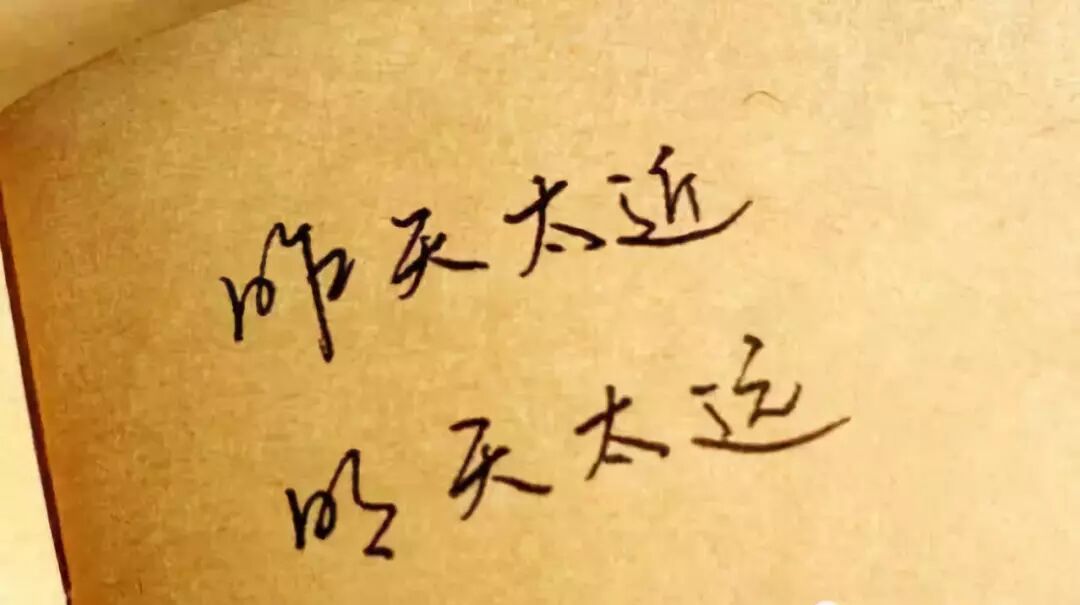 昨天太近
明天太远